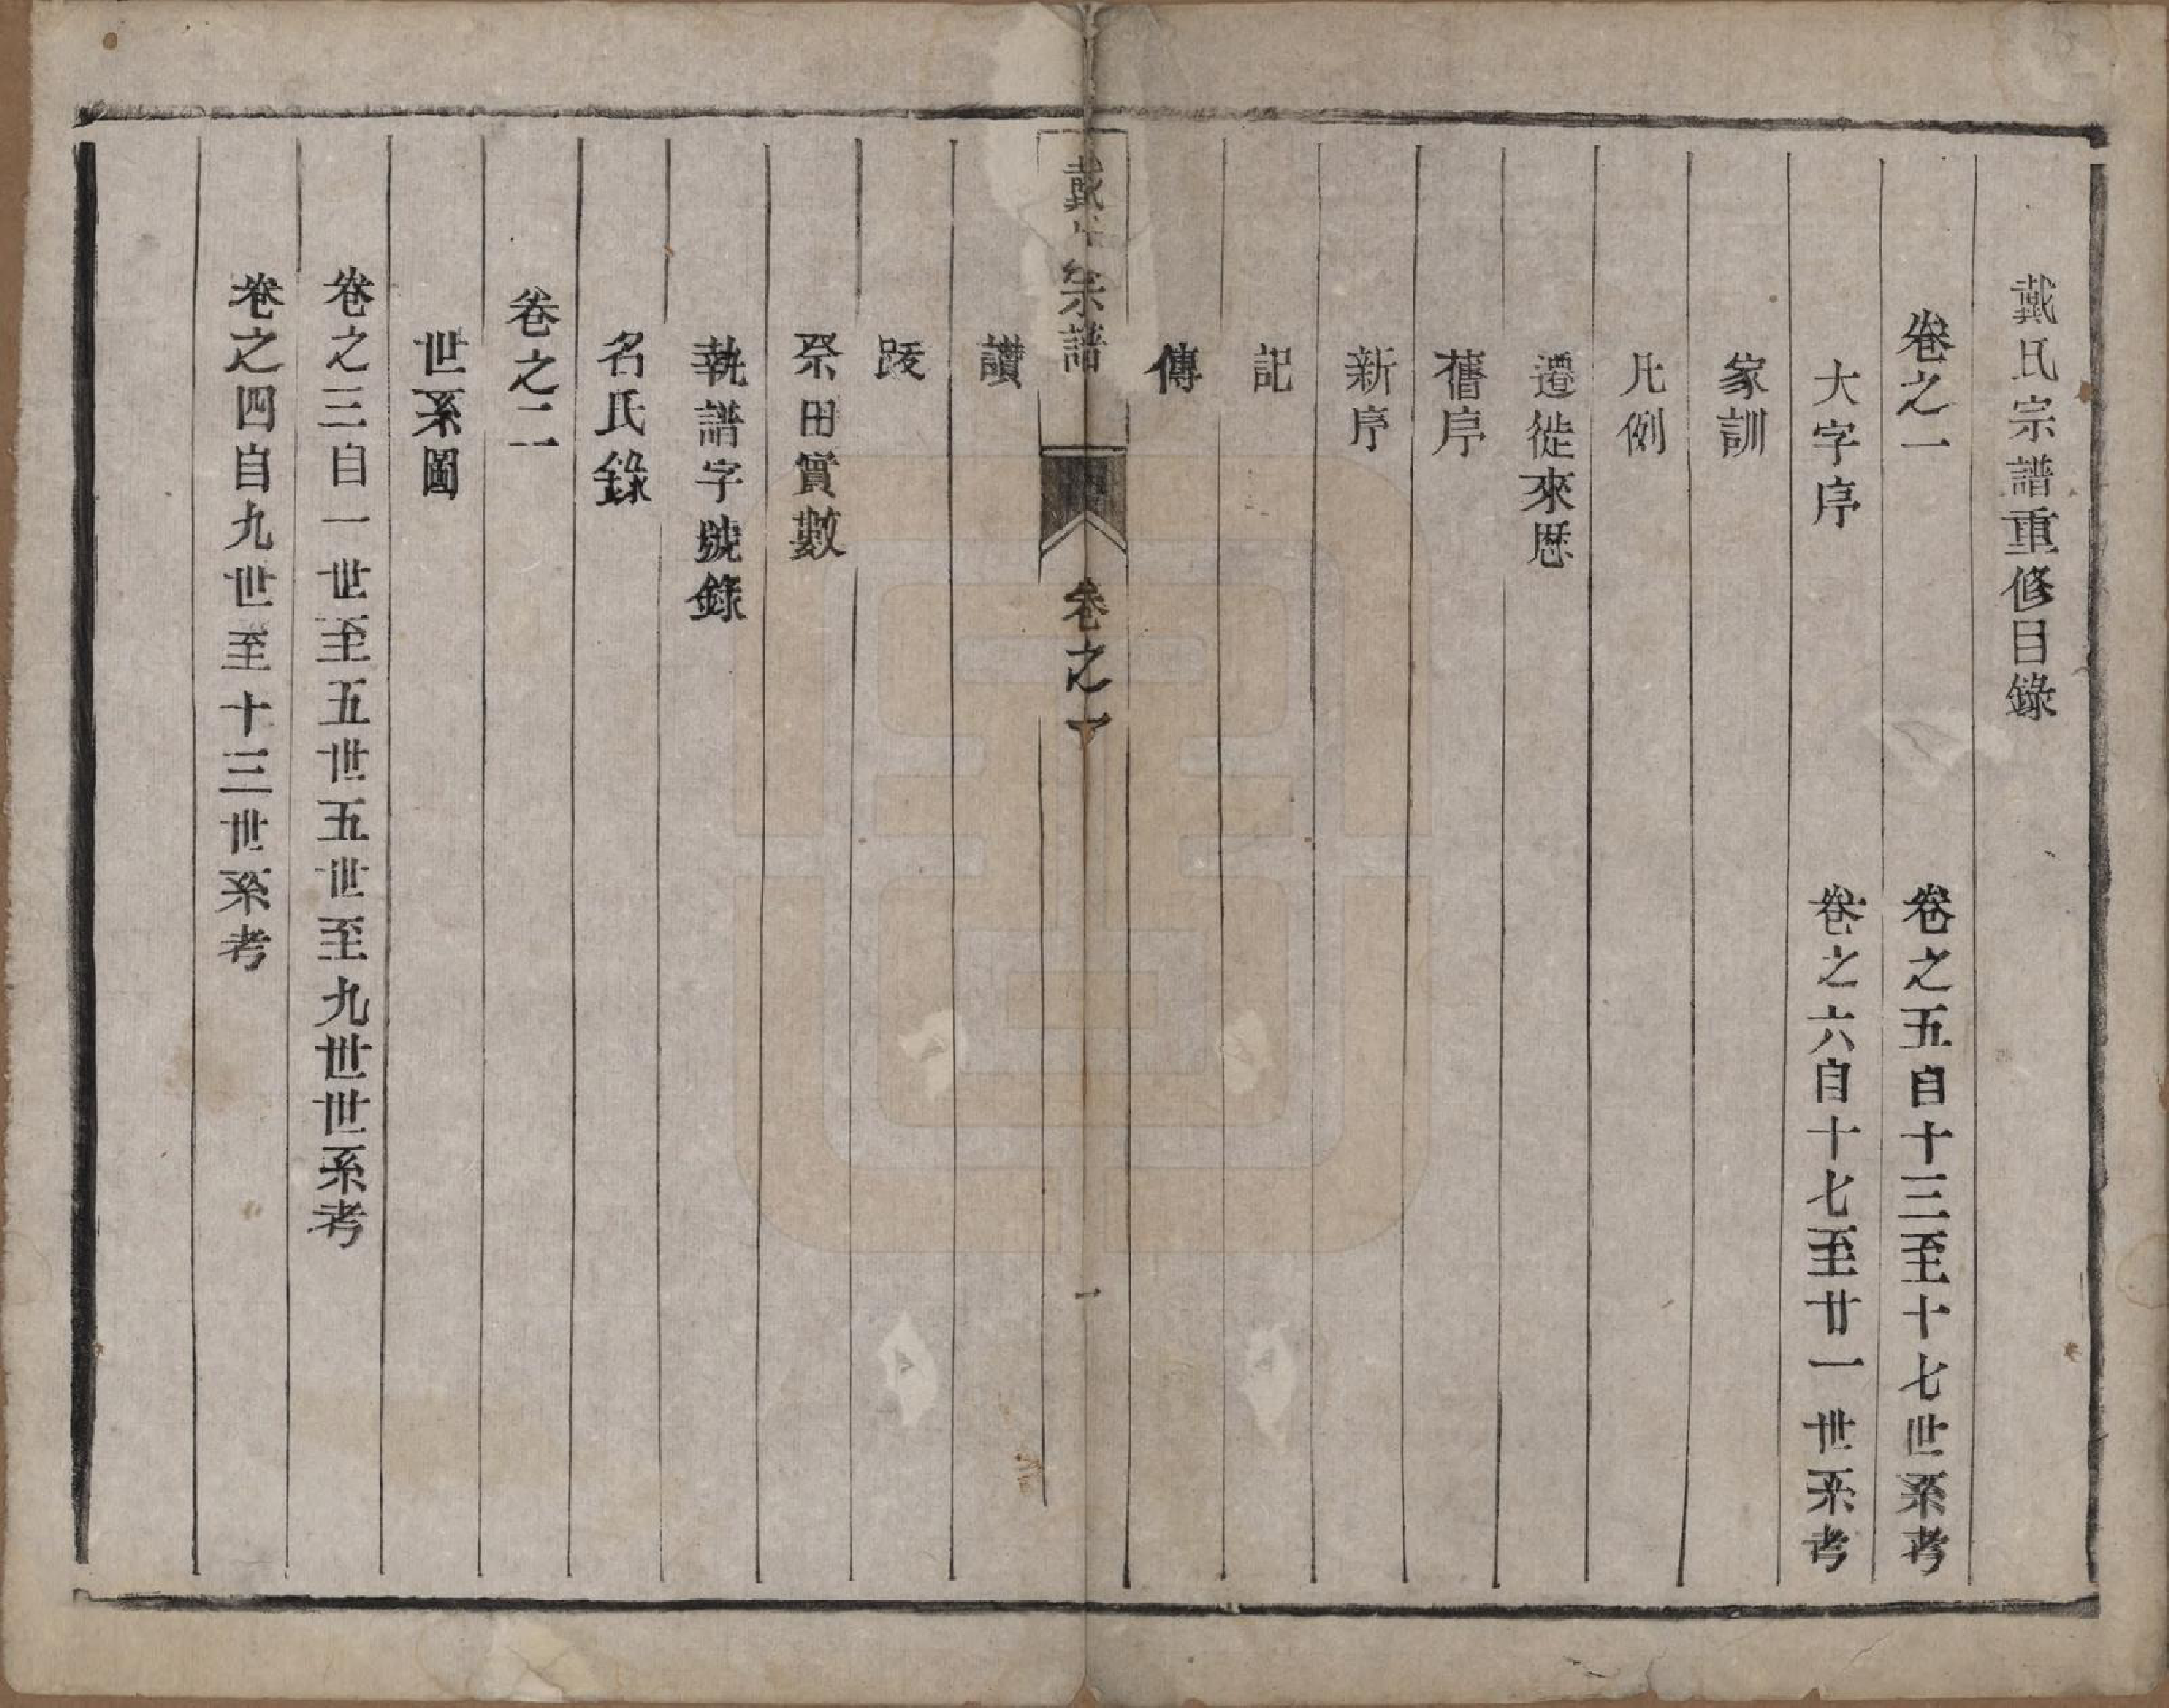 戴氏宗譜重修目錄
卷之一
卷之五自十三至十七世系考
大字序
卷之六自十七至廿一世系考
家訓
凡例
遷徙來歷
舊序
新序
記
傳
戴氏宗譜 卷之一 一
讃
跋
祭田實數
執譜字號錄
名氏錄
卷之二
世系圖
卷之三自一世至五世五世至九世世系考
卷之四自九世至十三世系考